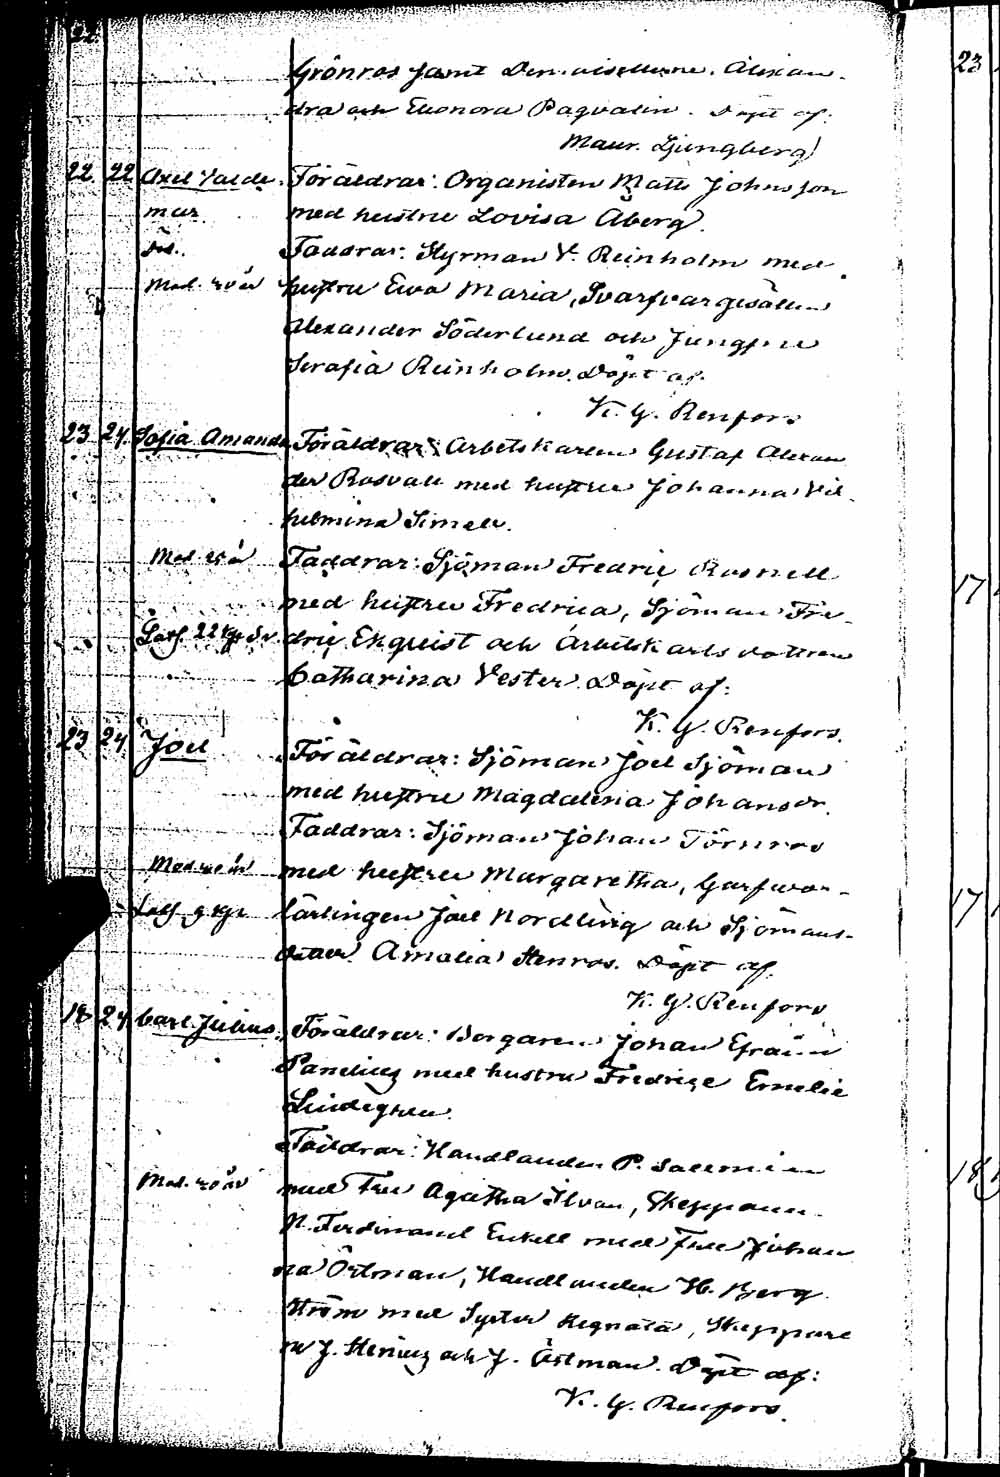 Grönros samt Demoisellerne Alexan-
dra och Eleonora Pagvalin. Döpt af:
Maur. Ljungberg
22 22 Axel Valde- Föräldrar: Organisten Matts Johnsson
mar med hustru Lovisa Åberg.
Faddrar: Styrman V. Reinholm med
Mod. 20 år hustru Ewa Maria, Svarfvargesällen
Alexander Söderlund och Jungfru
Serafia Reinholm. Döpt af:
K. G. Renfors
23 24 Sofia Amanda Föräldrar: Arbetskarlen Gustaf Alexan
der Rosvall med hustru Johanna Vil-
helmina Simell.
Mod. år Faddrar: Sjöman Fredric Rosnell
med hustru Fredrica, Sjöman Fre-
22 dric Ekquist och Arbetskarls dottren
Catharina Vester. Döpt af:
K. G. Renfors.
23 24 Joel
Föräldrar: Sjöman Joel Sjöman
med hustru Magdalena Johansdr.
Faddrar: Sjöman Johan Törnros
Mod. år med hustru Margaretha, Garfvar-
lärlingen Joel Nordling och Sjömans-
dotter Amalia Stenros. Döpt af.
K. G. Renfors
18 24 Carl Julius Föräldrar: Borgaren Johan Efraim
med hustru Fredrique Emelie
Lindegren.
Faddrar: Handlanden P.
Mod. år med Fru Agatha Ilvan, Skepparen
N. Ferdinand Enkell med Fru Johan
na Östman, Handlanden H. Berg
ström med Syster Regnata, Skeppare
n J. och J. Östman. Döpt af:
K. G. Renfors.
23
17
17
18